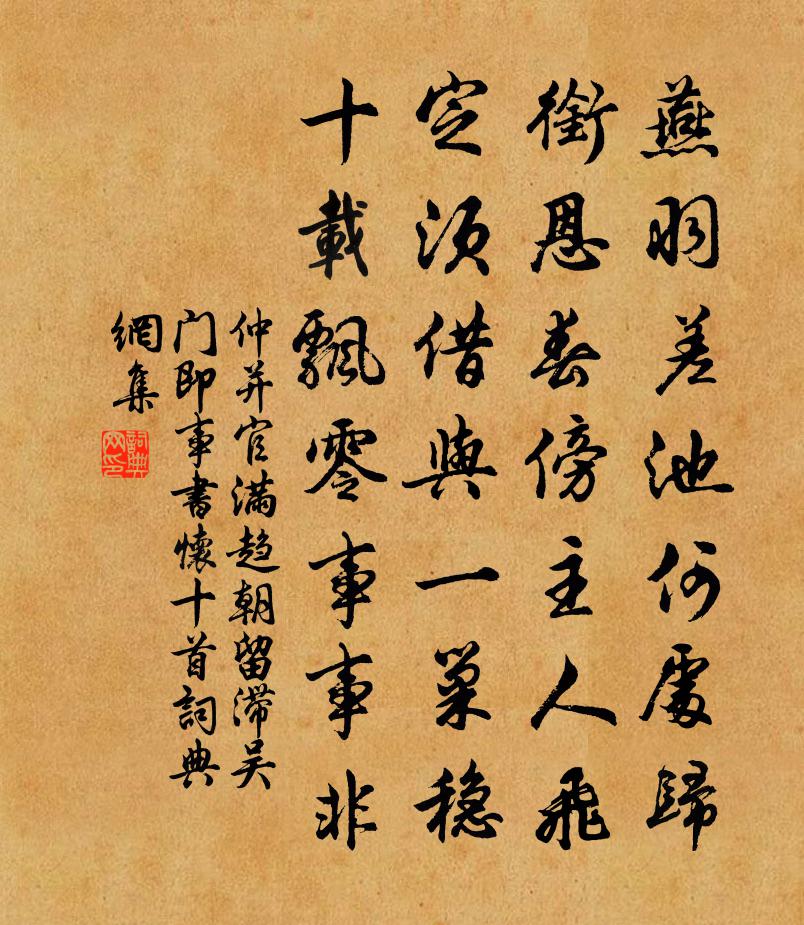 燕羽差池何處歸
銜恩春傍主人飛
定須借與一巢穩
十載飄零事事非
仲并官滿趨朝留滯吴
门即事書懷十首詞典
網集
詞典
网印